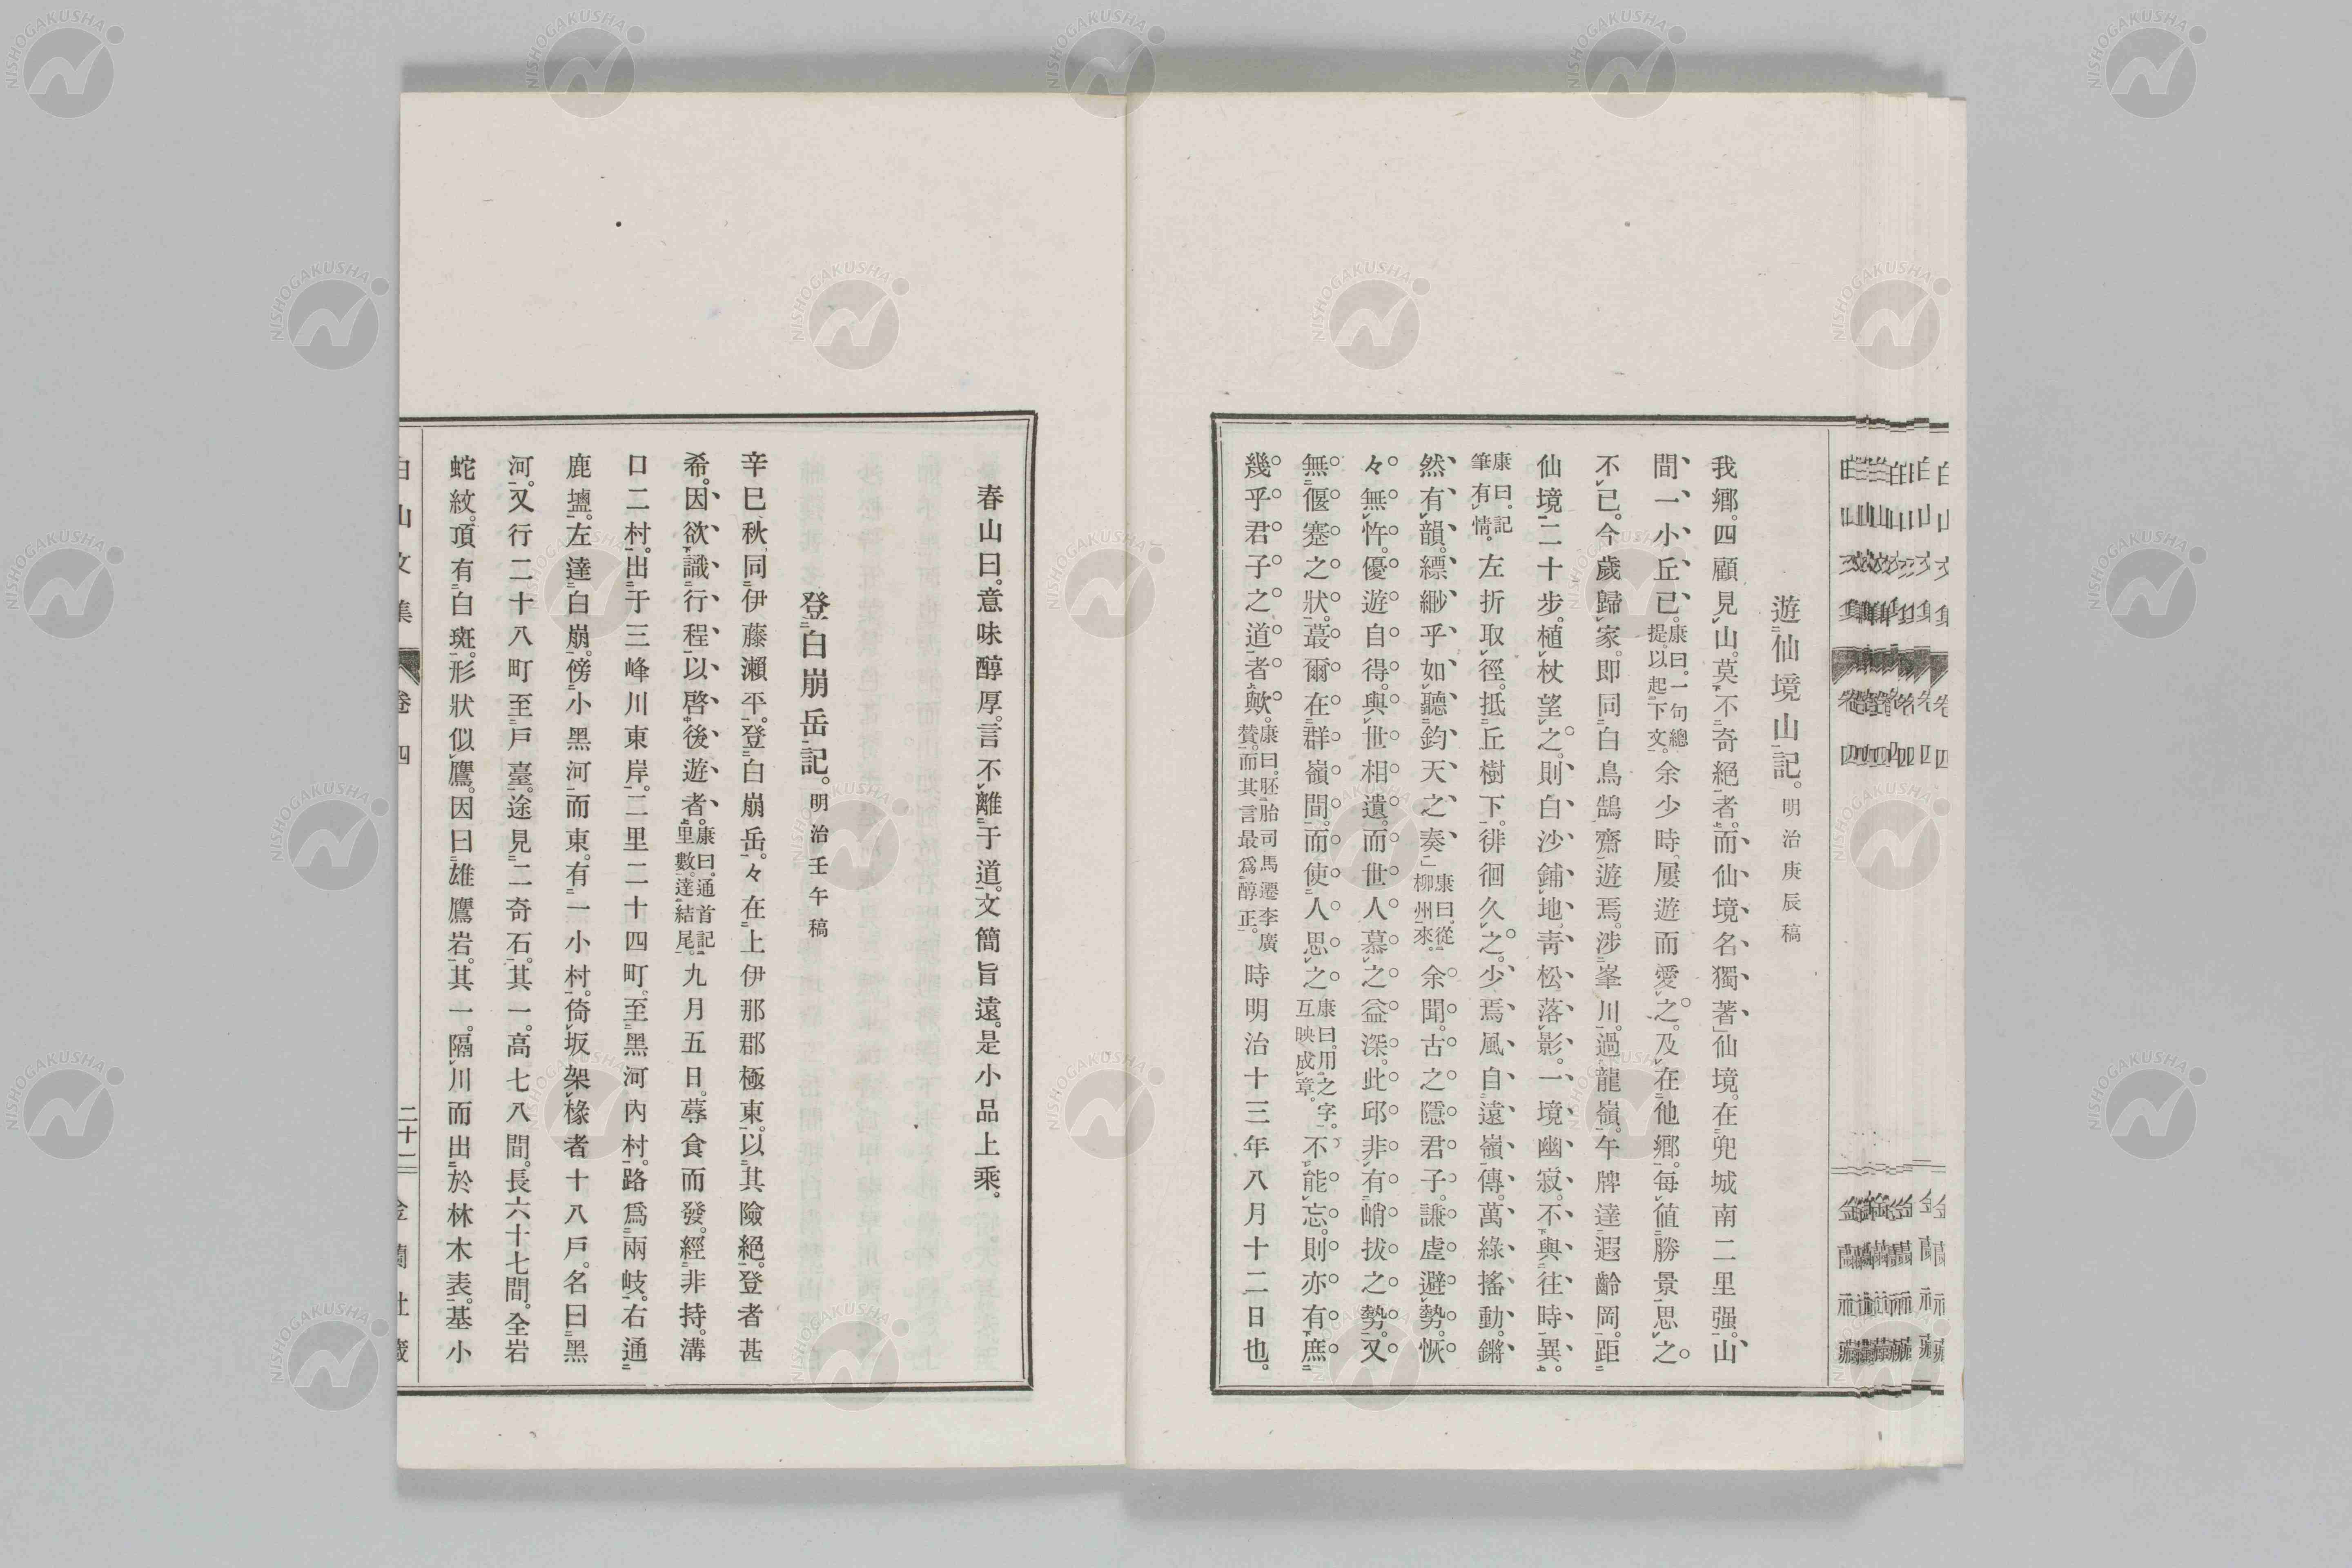 遊仙境山記。明治庚辰稿
我鄕。四顧見山。莫不奇絕者。而仙境名獨著」仙境。在兜城南二里强。山
間一小丘已。康曰。一句總提。以起下文。余少時。屢遊而愛之。及在他鄕。每値勝景思之。
不已。今歲歸家。卽同白鳥鵠齋遊焉。涉峯川。過龍嶺。午牌達遐齡岡。距
仙境二十步。植杖望之。則白沙鋪地。靑松落影。一境幽寂。不與往時異。
康曰。記筆有情。左折取徑。抵丘樹下。徘徊久之。少焉風自遠嶺傳。萬綠搖動。鏘
然有韻。縹緲乎如聽鈞天之奏」康曰。從柳州來。余聞。古之隱君子。謙虛避勢。恢
々無忤。優遊自得。與世相遺。而世人慕之益深。此邱非有峭拔之勢。又
無偃蹇之狀。蕞爾在群嶺間。而使人思之康曰。用之字。互映成章。不能忘。則亦有庶
幾乎君子之道者歟。康曰。胚胎司馬遷李廣贊。而其言最爲醇正。時明治十三年八月十二日也。
春山曰。意味醇厚。言不離于道。文簡旨遠。是小品上乘。
登白崩岳記。明治壬午稿
辛巳秋。同伊藤瀨平。登白崩岳。々在上伊那郡極東。以其險絕。登者甚
希。因欲識行程。以啓後遊者。康曰。通首記里數。達結尾。九月五日。蓐食而發。經非持。溝
口二村。出于三峰川東岸。二里二十四町。至黑河內村。路爲兩岐。右通
鹿壚。左達白崩。傍小黑河而東。有一小村。倚坂架椽者十八戶。名曰黑
河。又行二十八町至戶臺。途見二奇石。其一。高七八間。長六十七間。全岩
蛇紋。頂有白斑。形狀似鷹。因曰雄鷹岩。其一。隔川而出於林木表。基小
白山文集 卷四 二十一 金蘭社藏